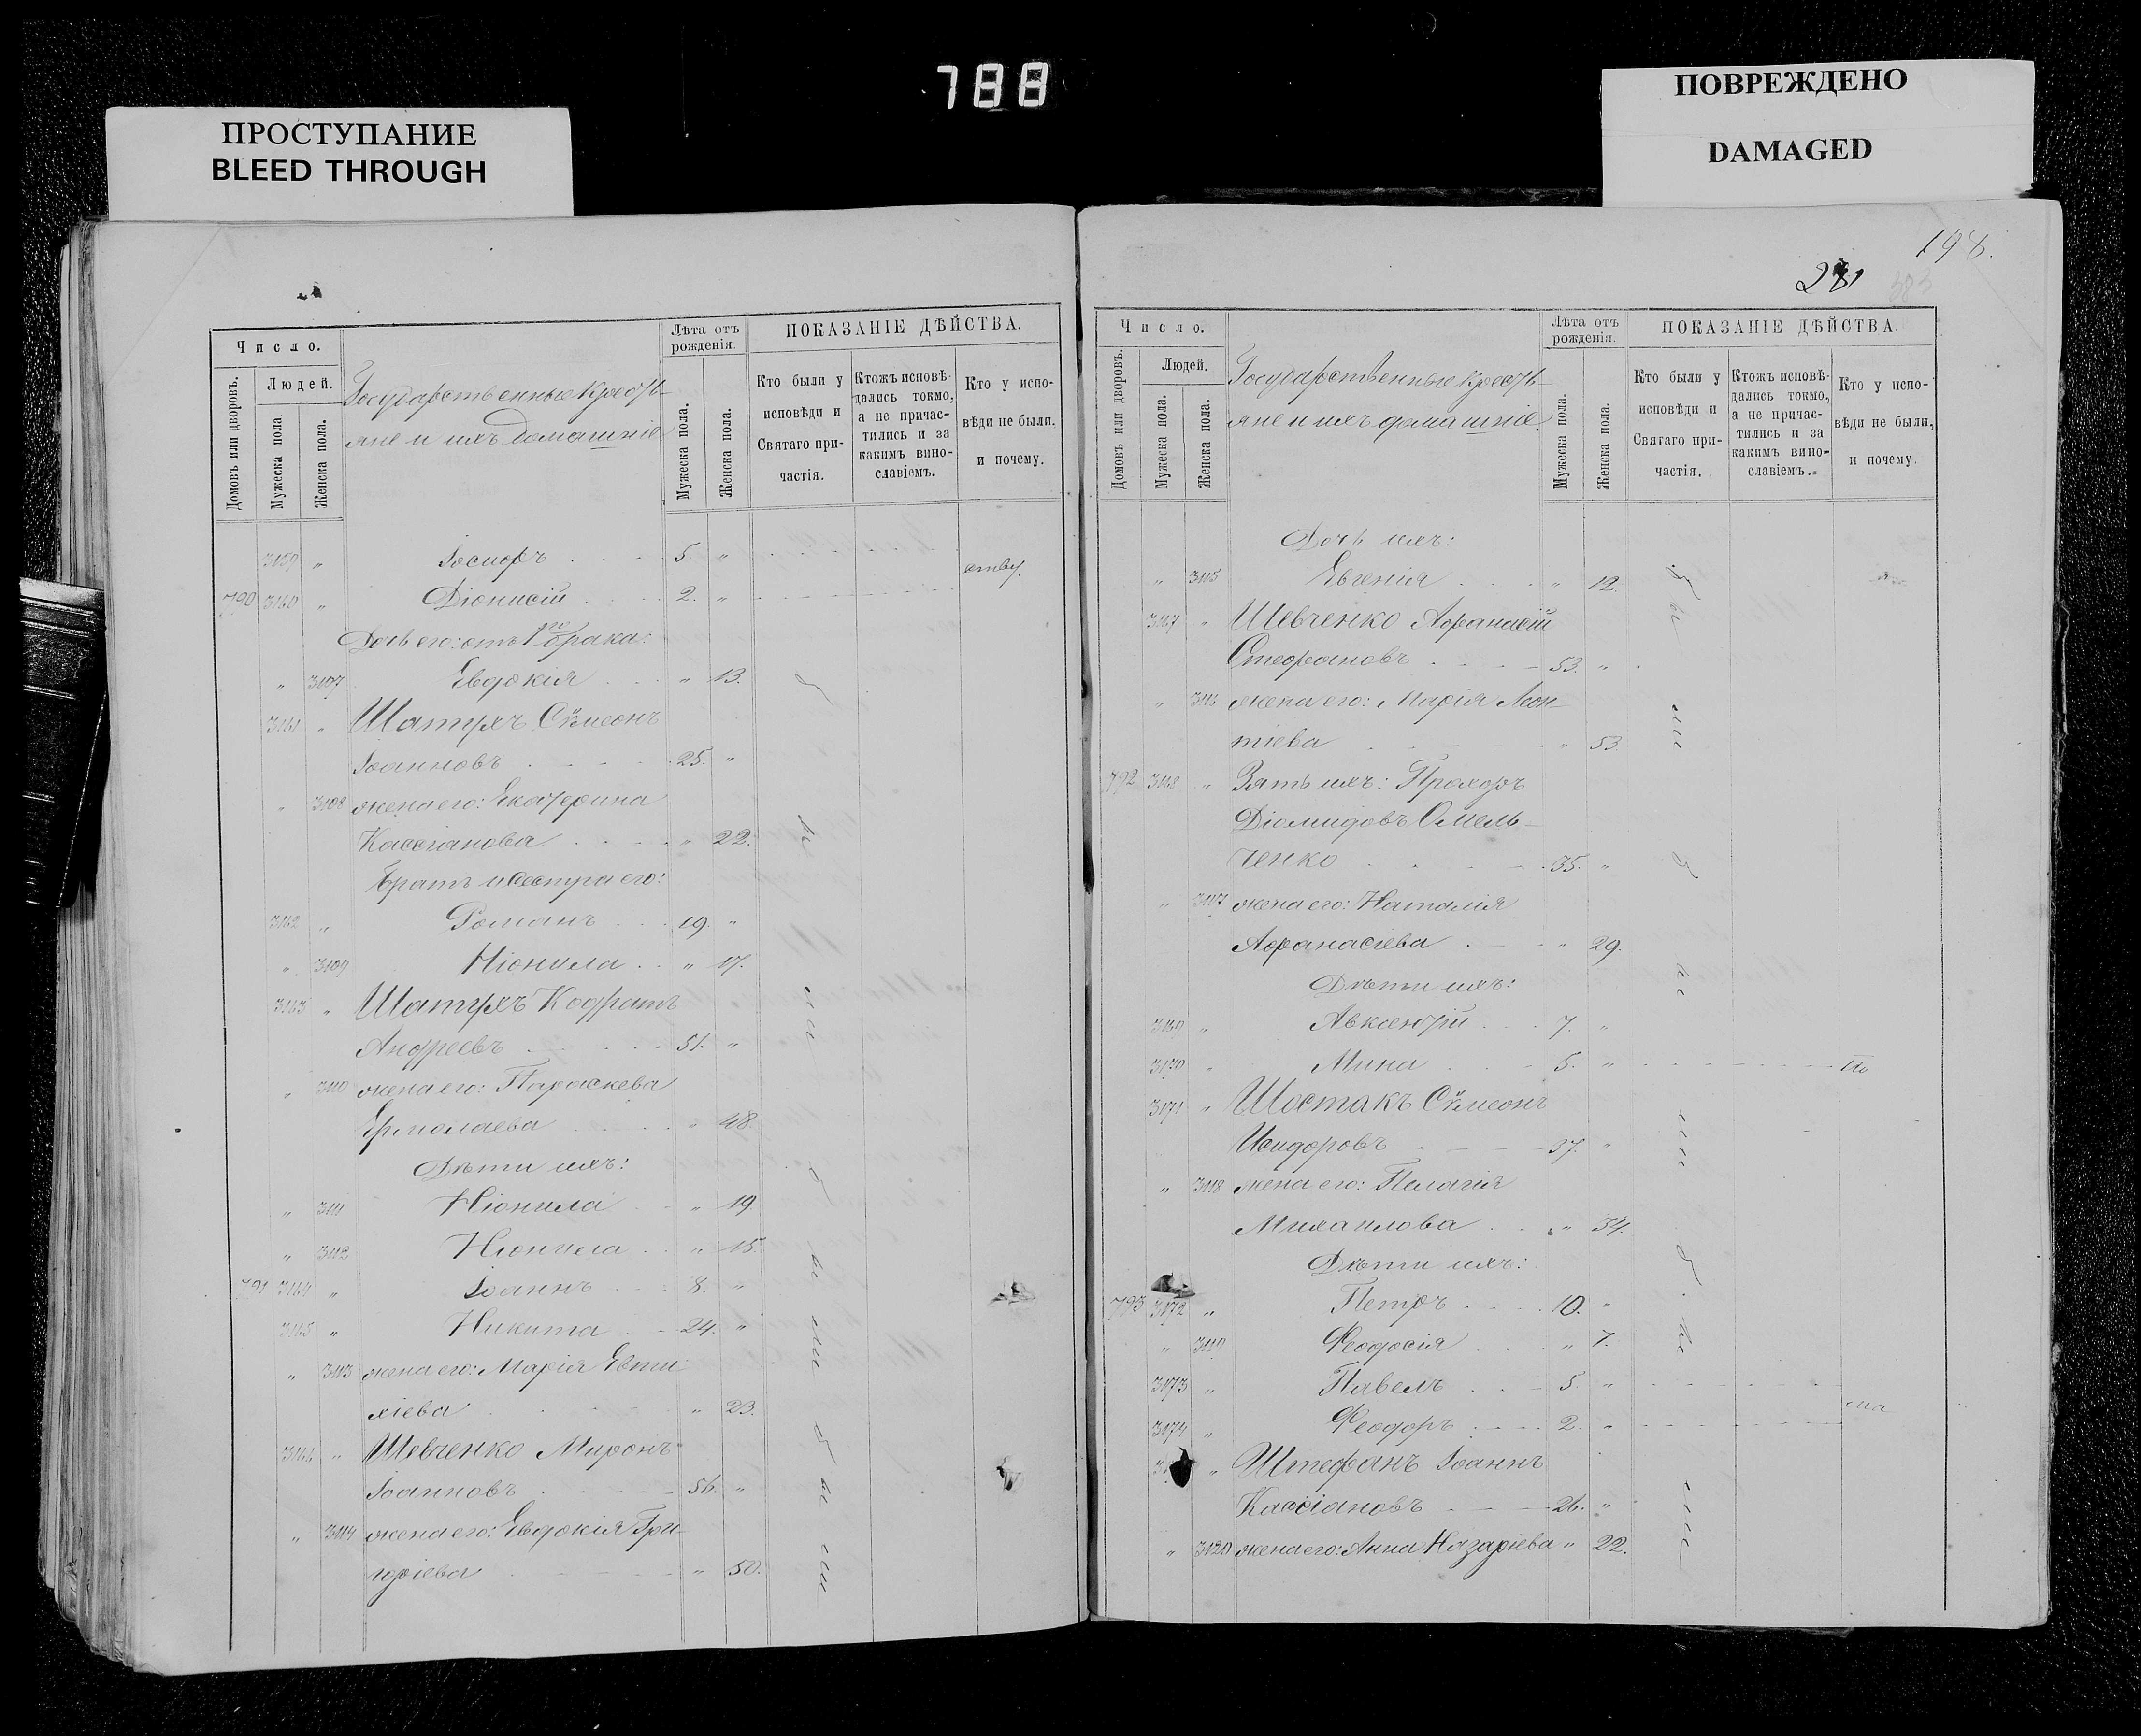 788
ПРОСТУПАНИЕ
BLEED THROUGH
ПОВРЕЖДЕНО
DAMAGED
Число.
Людей.
Домовъ или дворовъ.
Мужеска пола
Женска пола.
Государственные кресть-
яне и ихъ домашніе
Лѣта отъ
рожденія.
Мужеска пола.
Женска пола.
ПОКАЗАНІЕ ДѢЙСТВА.
Кто были у
исповѣди и
Святаго при-
частія.
Ктожъ исповѣ-
дались токмо,
а не причас-
тились и за
какимъ вино-
славіемъ.
Кто у испо-
вѣди не были.
и почему.
3159 " 5 "
790 3160 " Діонисій 2. "
Дочь его: отъ 1го брака:
" 3107 Евдокія " 13.
3161 " Шатухъ Сѷмеонъ
Іоанновъ 25. "
" 3108 жена его: Екатерина
Кассіанова " 22.
Братъ и сестра его:
3162 " Романъ 19. "
" 3109 Ніонила " 17.
3163 " Шатухъ Кодратъ
Андреевъ 51. "
" 3110 жена его: Параскева
Ермолаева " 48.
Дѣти ихъ:
" 3111 Ніонила " 19
" 3112 Ніонила " 15.
791 3164 " Іоаннъ 8. "
3165 " Никита 24. "
" 3113 жена его: Марія Евти
хіева " 23.
3166 " Шевченко Миронъ
Іоанновъ 56. "
" 3114 жена его: Евдокія Гри-
горіева " 50.
198.
281
Число.
Людей.
Домовъ или дворовъ.
Мужеска пола.
Женска пола.
Государственные кресть-
яне и ихъ домашніе.
Лѣта отъ
рожденія.
Мужеска пола.
Женска пола.
ПОКАЗАНІЕ ДѢЙСТВА.
Кто были у
исповѣди и
Святаго при-
частія.
Ктожъ исповѣ-
дались токмо,
а не причас-
тились и за
какимъ вино-
славіемъ.
Кто у испо-
вѣди не были,
и почему.
Дочь ихъ:
" 3115 Евгенія " 12.
3167 " Шевченко Афанасій
Стефановъ 53. "
" 3116 жена его: Марія Леон-
тіева " 53.
792 3168 " Зять ихъ: Прохоръ
Діомидовъ Омель-
ченко 35. "
" 3117 жена его: Наталія
Афанасіева " 29.
Дѣти ихъ:
3169 " Авксентій 7. "
3170 " Мина 5. "
3171 " Шостакъ Сѷмеонъ
Исидоровъ 37. "
" 3118 жена его: Пелагія
Михаилова " 34.
Дѣти ихъ:
793 3172 " Петръ 10. "
" 3119 Феодосія " 7.
3173 " Павелъ 5 "
3174 " Феодоръ 2. "
" Штефанъ Іоаннъ
Кассіановъ 26. "
" 3120 жена его: Анна Назаріева " 22.